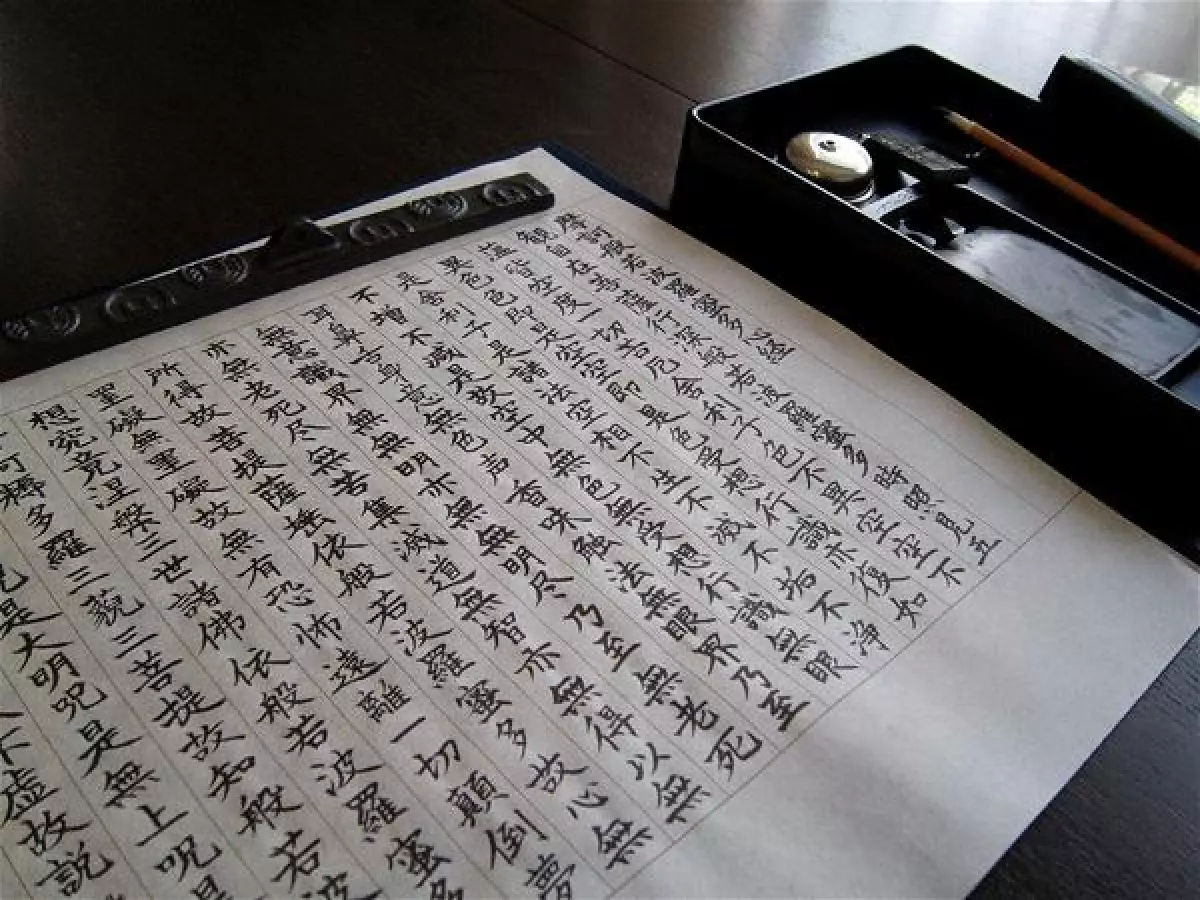 摩訶般若波羅蜜多心経
観自在菩薩行深般若波羅蜜多時照見五
蘊皆空度一切苦厄舎利子色不異空空不
異色色即是空空即是色受想行識亦復如
是舎利子是諸法空相不生不滅不垢不浄
不増不減是故空中無色無受想行識無眼
耳鼻舌身意無色声香味触法無眼界乃至
無意識界無無明亦無無明尽乃至無老死
亦無老死尽無苦集滅道無智亦無得以無
所得故菩提薩埵依般若波羅蜜多故心無
罣礙無罣礙故無有恐怖遠離一切顛倒夢
想究竟涅槃三世諸佛依般若波羅蜜多
阿耨多羅三藐三菩提故知般若波
呪是大明呪是無上呪是
不虚故説